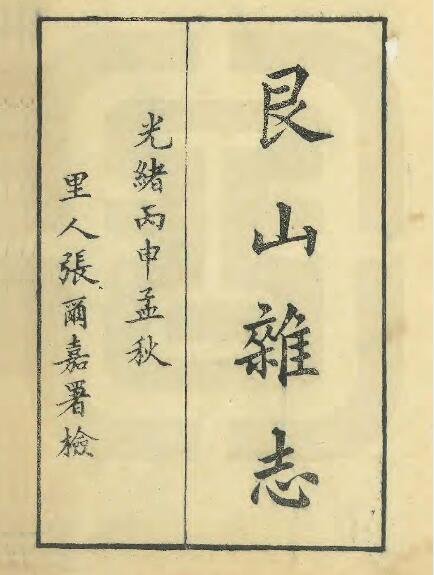 艮山雜志
光緒丙申孟秋
里人張爾嘉署檢